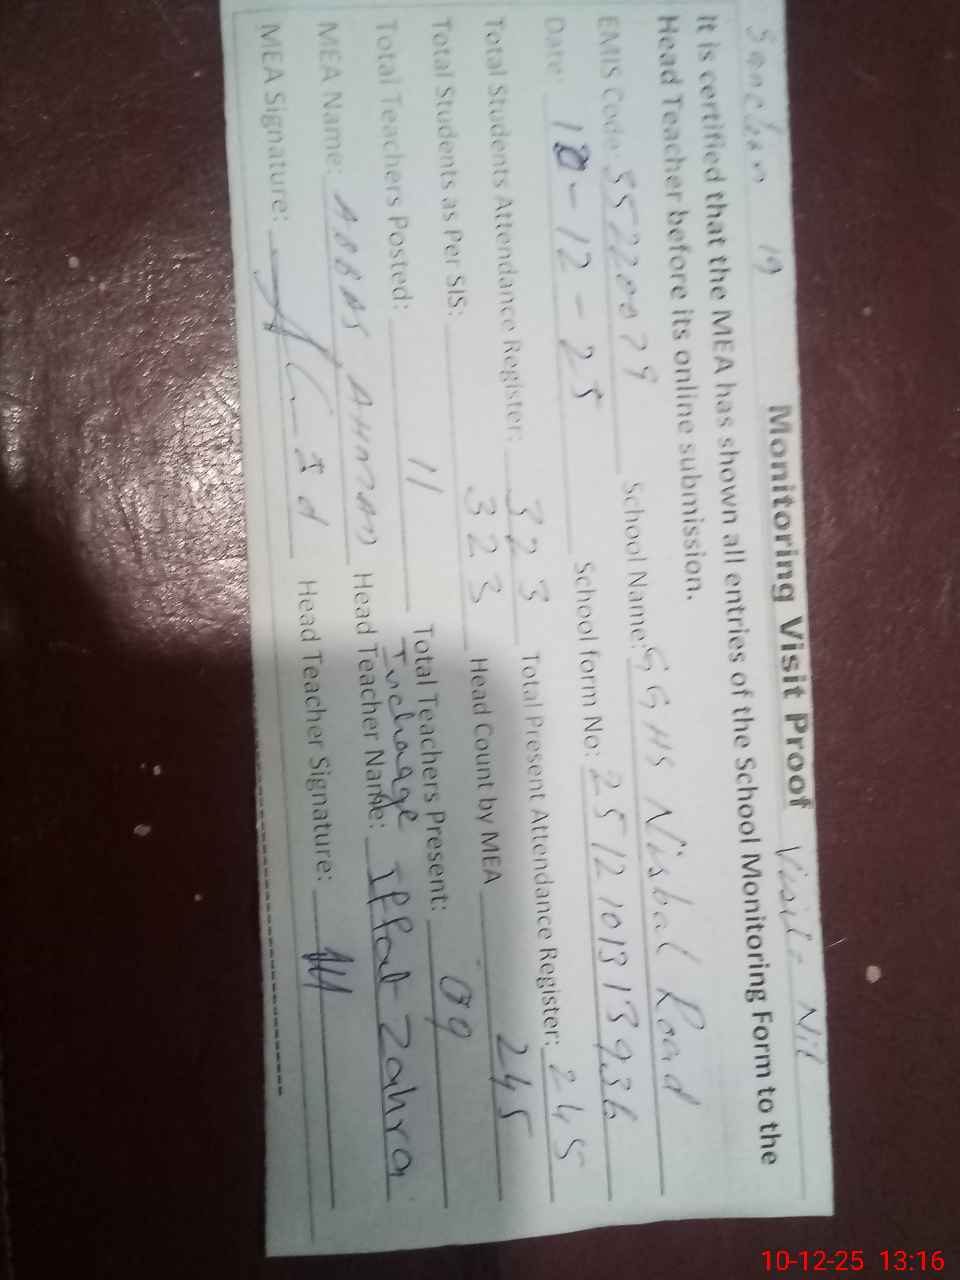 Sanction 19 Visit - Nil
Monitoring Visit Proof
It is certified that the MEA has shown all entries of the School Monitoring Form to the
Head Teacher before its online submission.
EMIS Code: 55220079 School Name: GGHS Nisbat Road
Date: 10-12-25 School form No: 2512101313936
Total Students Attendance Register: 323 Total Present Attendance Register: 245
Total Students as Per SIS: 323 Head Count by MEA 245
Total Teachers Posted: 11 Total Teachers Present: 09
Incharge
MEA Name: ABBAS Head Teacher Name: Iffat Zahra
MEA Signature: Head Teacher Signature:
10-12-25 13:16